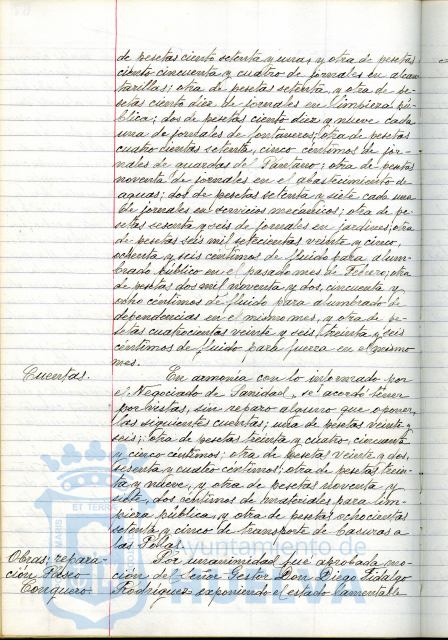 de pesetas ciento setenta y una; y otra de pesetas
ciento cincuenta y cuatro de jornales en alcan-
tarillas; otra de pesetas setenta, y otra de pe-
setas ciento diez de jornales en limpieza pú-
blica; dos de pesetas ciento diez y nueve cada
una de jornales de fontaneros; otra de pesetas
cuatrocientas setenta, cinco céntimos de jor-
nales de guardas del Pantano; otra de pesetas
noventa de jornales en el abastecimiento de
aguas; dos de pesetas setenta y siete cada una
de jornales en servicios mecánicos; otra de pe-
setas sesenta y seis de jornales en jardines; otra
de pesetas seis mil setecientas veinte y cinco,
ochenta y seis céntimos de fluido para alum-
brado público en el pasado mes de Febrero; otra
de pesetas dos mil noventa y dos, cincuenta y
ocho céntimos de fluido para alumbrado de
dependencias en el mismo mes, y otra de pe-
setas cuatrocientas veinte y seis, treinta y seis
céntimos de fluido para fuerza en el mismo
mes.
Cuentas. En armonía con lo informado por
el Negociado de Sanidad, se acordó tener
por vistas, sin reparo alguno que oponer,
las siguientes cuentas; una de pesetas veinte y
seis; otra de pesetas treinta y cuatro, cincuenta
y cinco céntimos; otra de pesetas veinte y dos,
sesenta y cuatro céntimos; otra de pesetas trein-
ta y nueve, y otra de pesetas noventa y
siete, dos céntimos de materiales para lim-
pieza pública, y otra de pesetas ochocientas
setenta y cinco de transporte de basuras a
las Pollas.
Obras; repara- Por unanimidad fue aprobada mo-
ción Paseo ción del Señor Gestor Don Diego Fidalgo
Conquero. Rodríguez exponiendo el estado lamentable
Ayuntamiento de
HUELVA